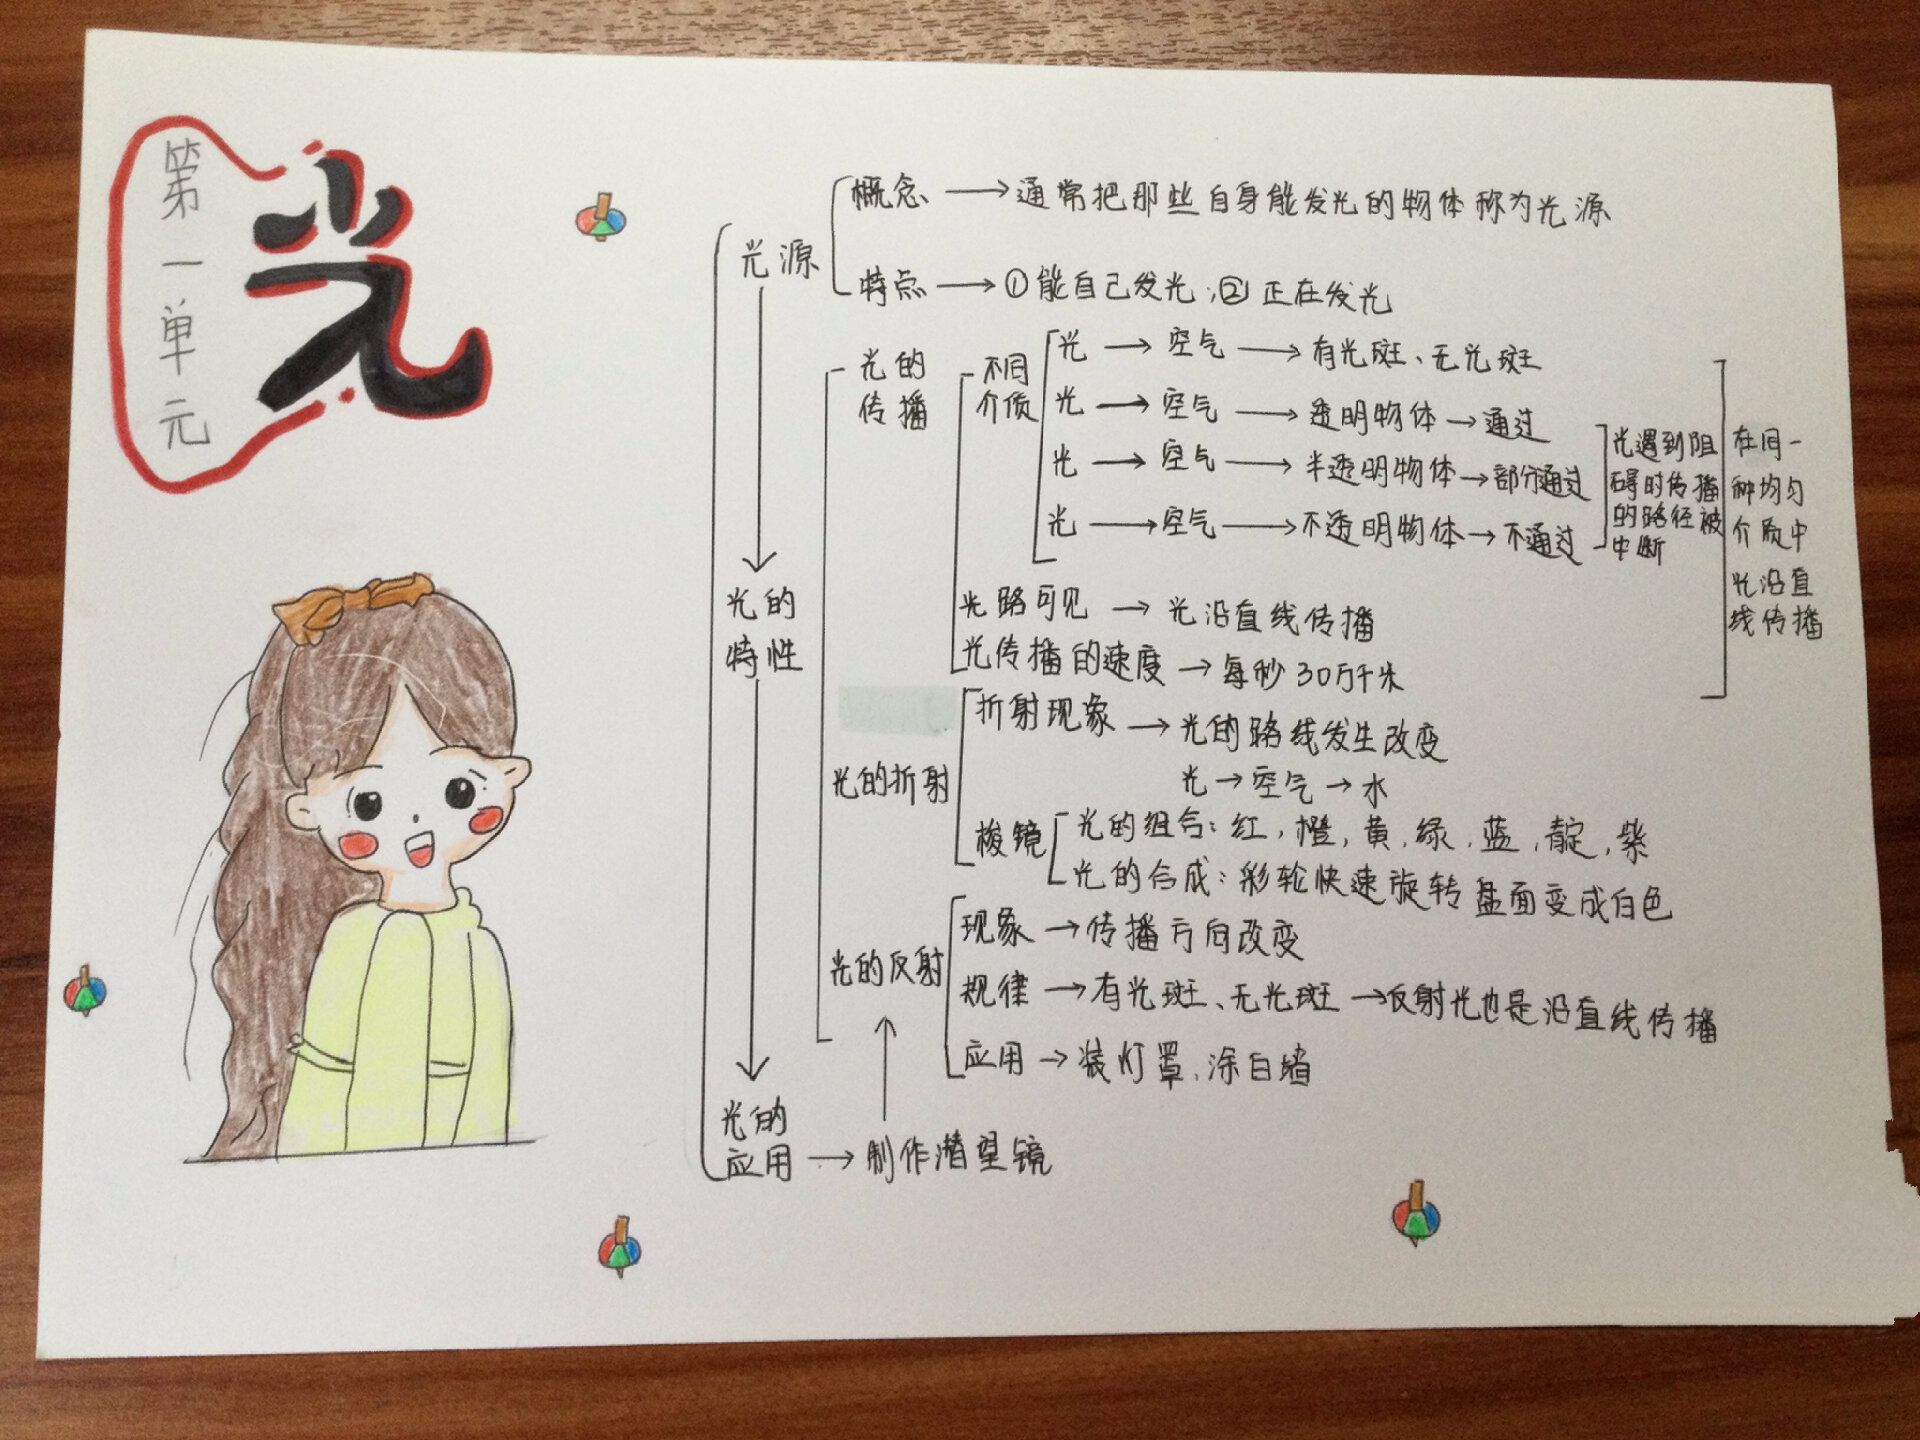 第一单元
光
光源
概念 → 通常把那些自身能发光的物体称为光源
特点 → ①能自己发光;②正在发光
光的
特性
光的
传播
不同
介质
光 → 空气 → 有光斑、无光斑
光 → 空气 → 透明物体 → 通过
光 → 空气 → 半透明物体 → 部分通过
光 → 空气 → 不透明物体 → 不通过
光遇到阻
碍时传播
的路径被
中断
在同一
种均匀
介质中
光沿直
线传播
光路可见 → 光沿直线传播
光传播的速度 → 每秒30万千米
光的折射
折射现象 → 光的路线发生改变
光 → 空气 → 水
梭镜
光的组合:红,橙,黄,绿,蓝,靛,紫
光的合成:彩轮快速旋转盘面变成白色
光的反射
现象 → 传播方向改变
规律 → 有光斑、无光斑 → 反射光也是沿直线传播
应用 → 装灯罩、涂白墙
光的
应用 → 制作潜望镜